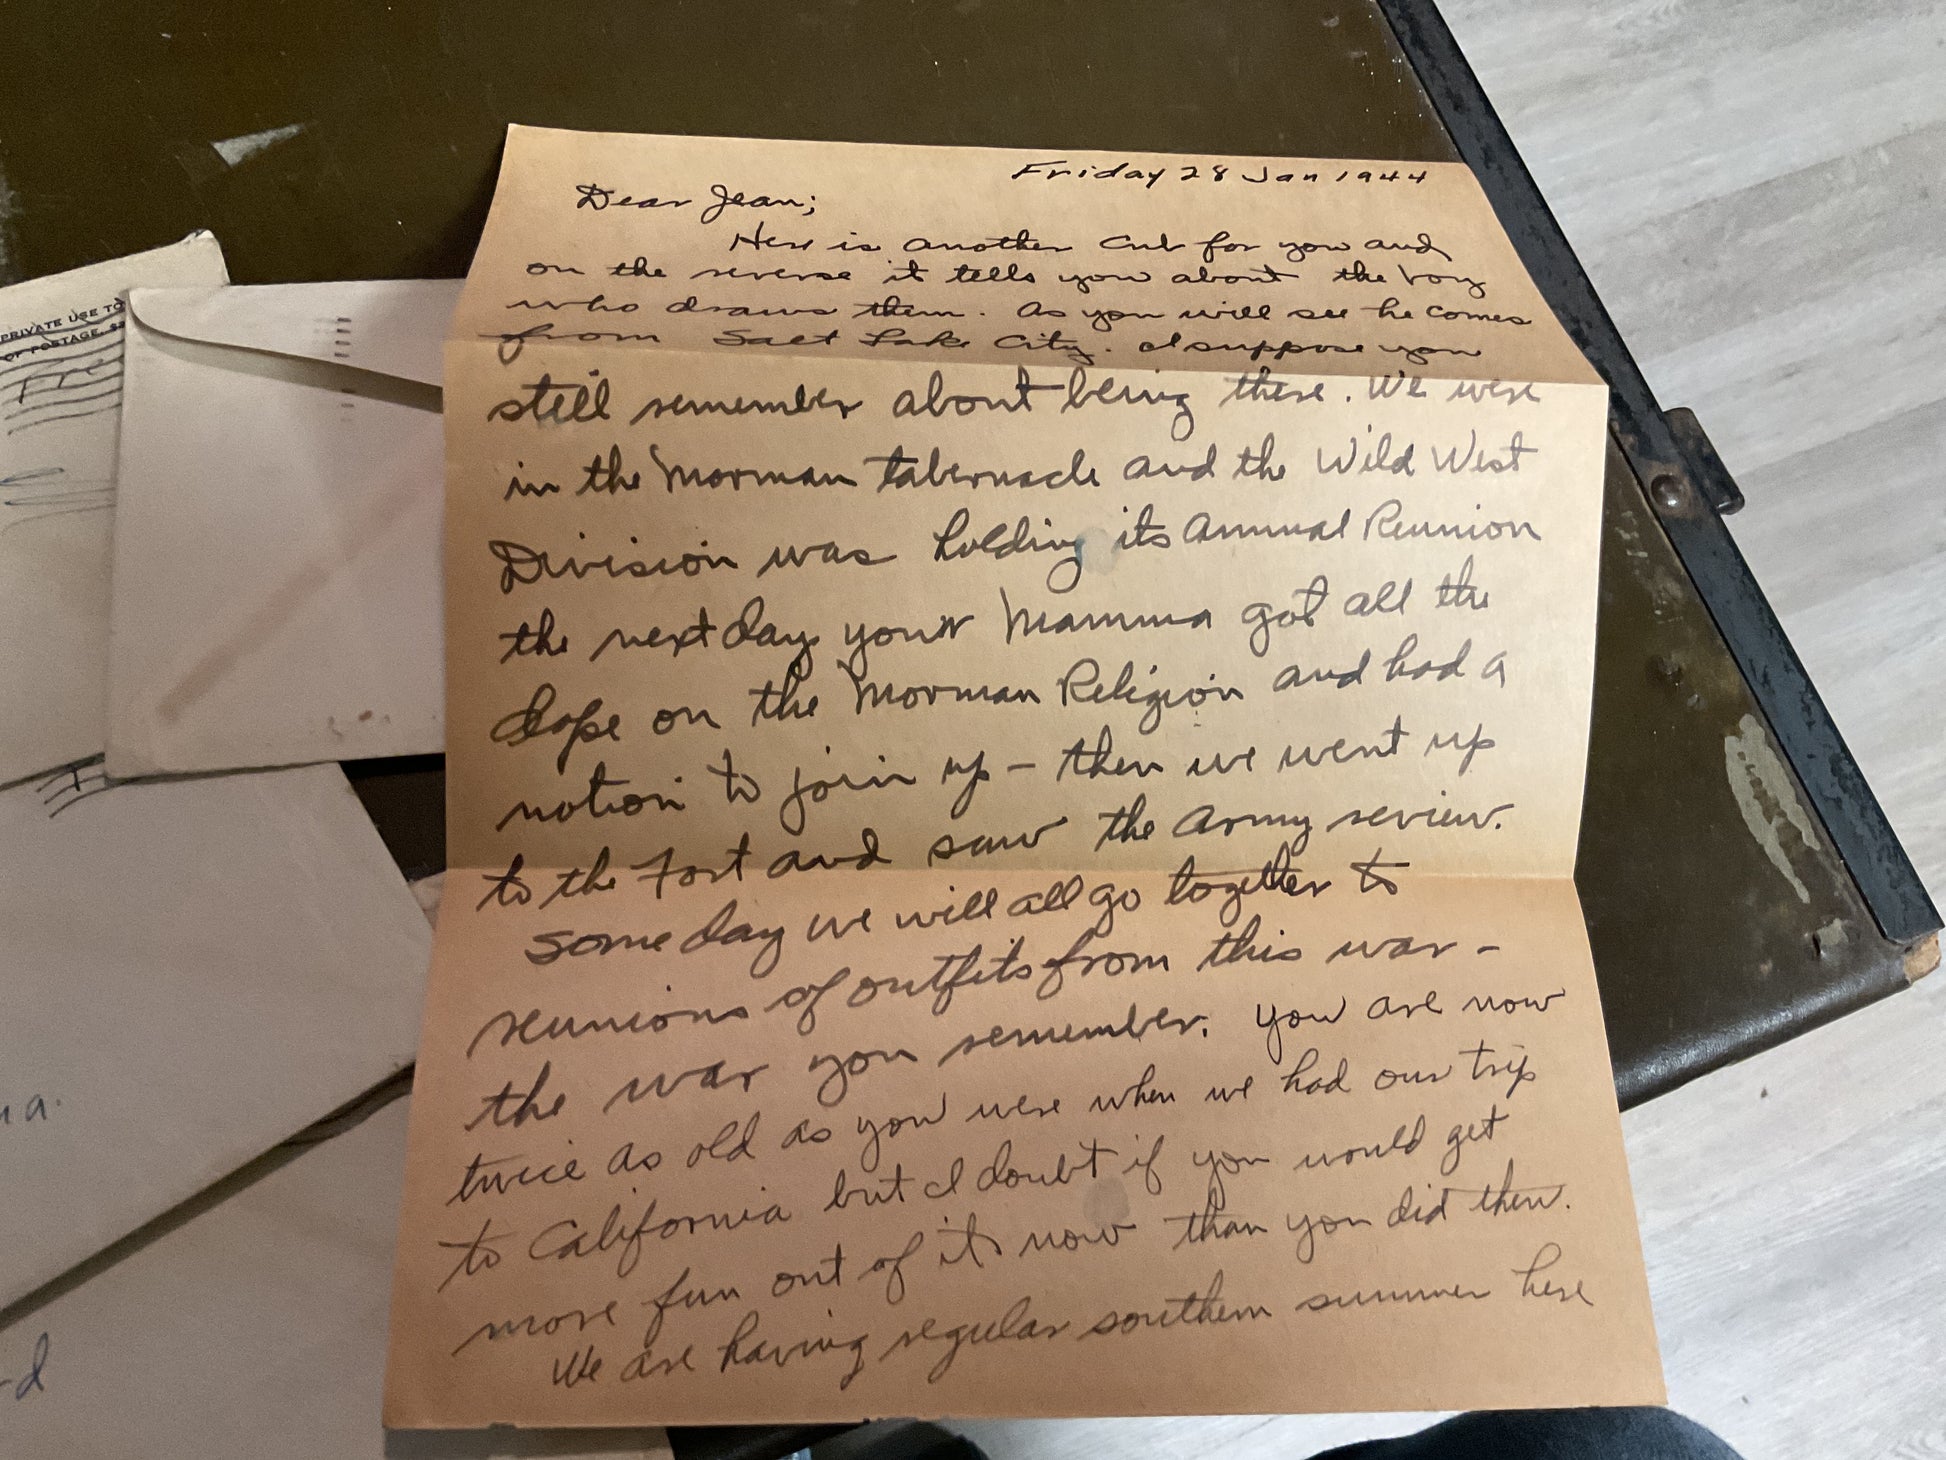 Friday 28 Jan 1944
Dear Jean;
Here is another Cub for you and
on the reverse it tells you about the boy
who draws them. As you will see he comes
from Salt Lake City. I suppose you
still remember about being there. We were
in the Morman tabernacle and the Wild West
Division was holding its Annual Reunion
the next day your Mamma got all the
dope on the Morman Religion and had a
notion to join up – then we went up
to the Fort and saw the Army review.
Some day we will all go together to
reunions of outfits from this war –
the war you remember. You are now
twice as old as you were when we had our trip
to California but I doubt if you would get
more fun out of it now than you did then.
We are having regular southern summer here
PRIVATE USE TO
OF POSTAGE, $3
Fre
na.
rd